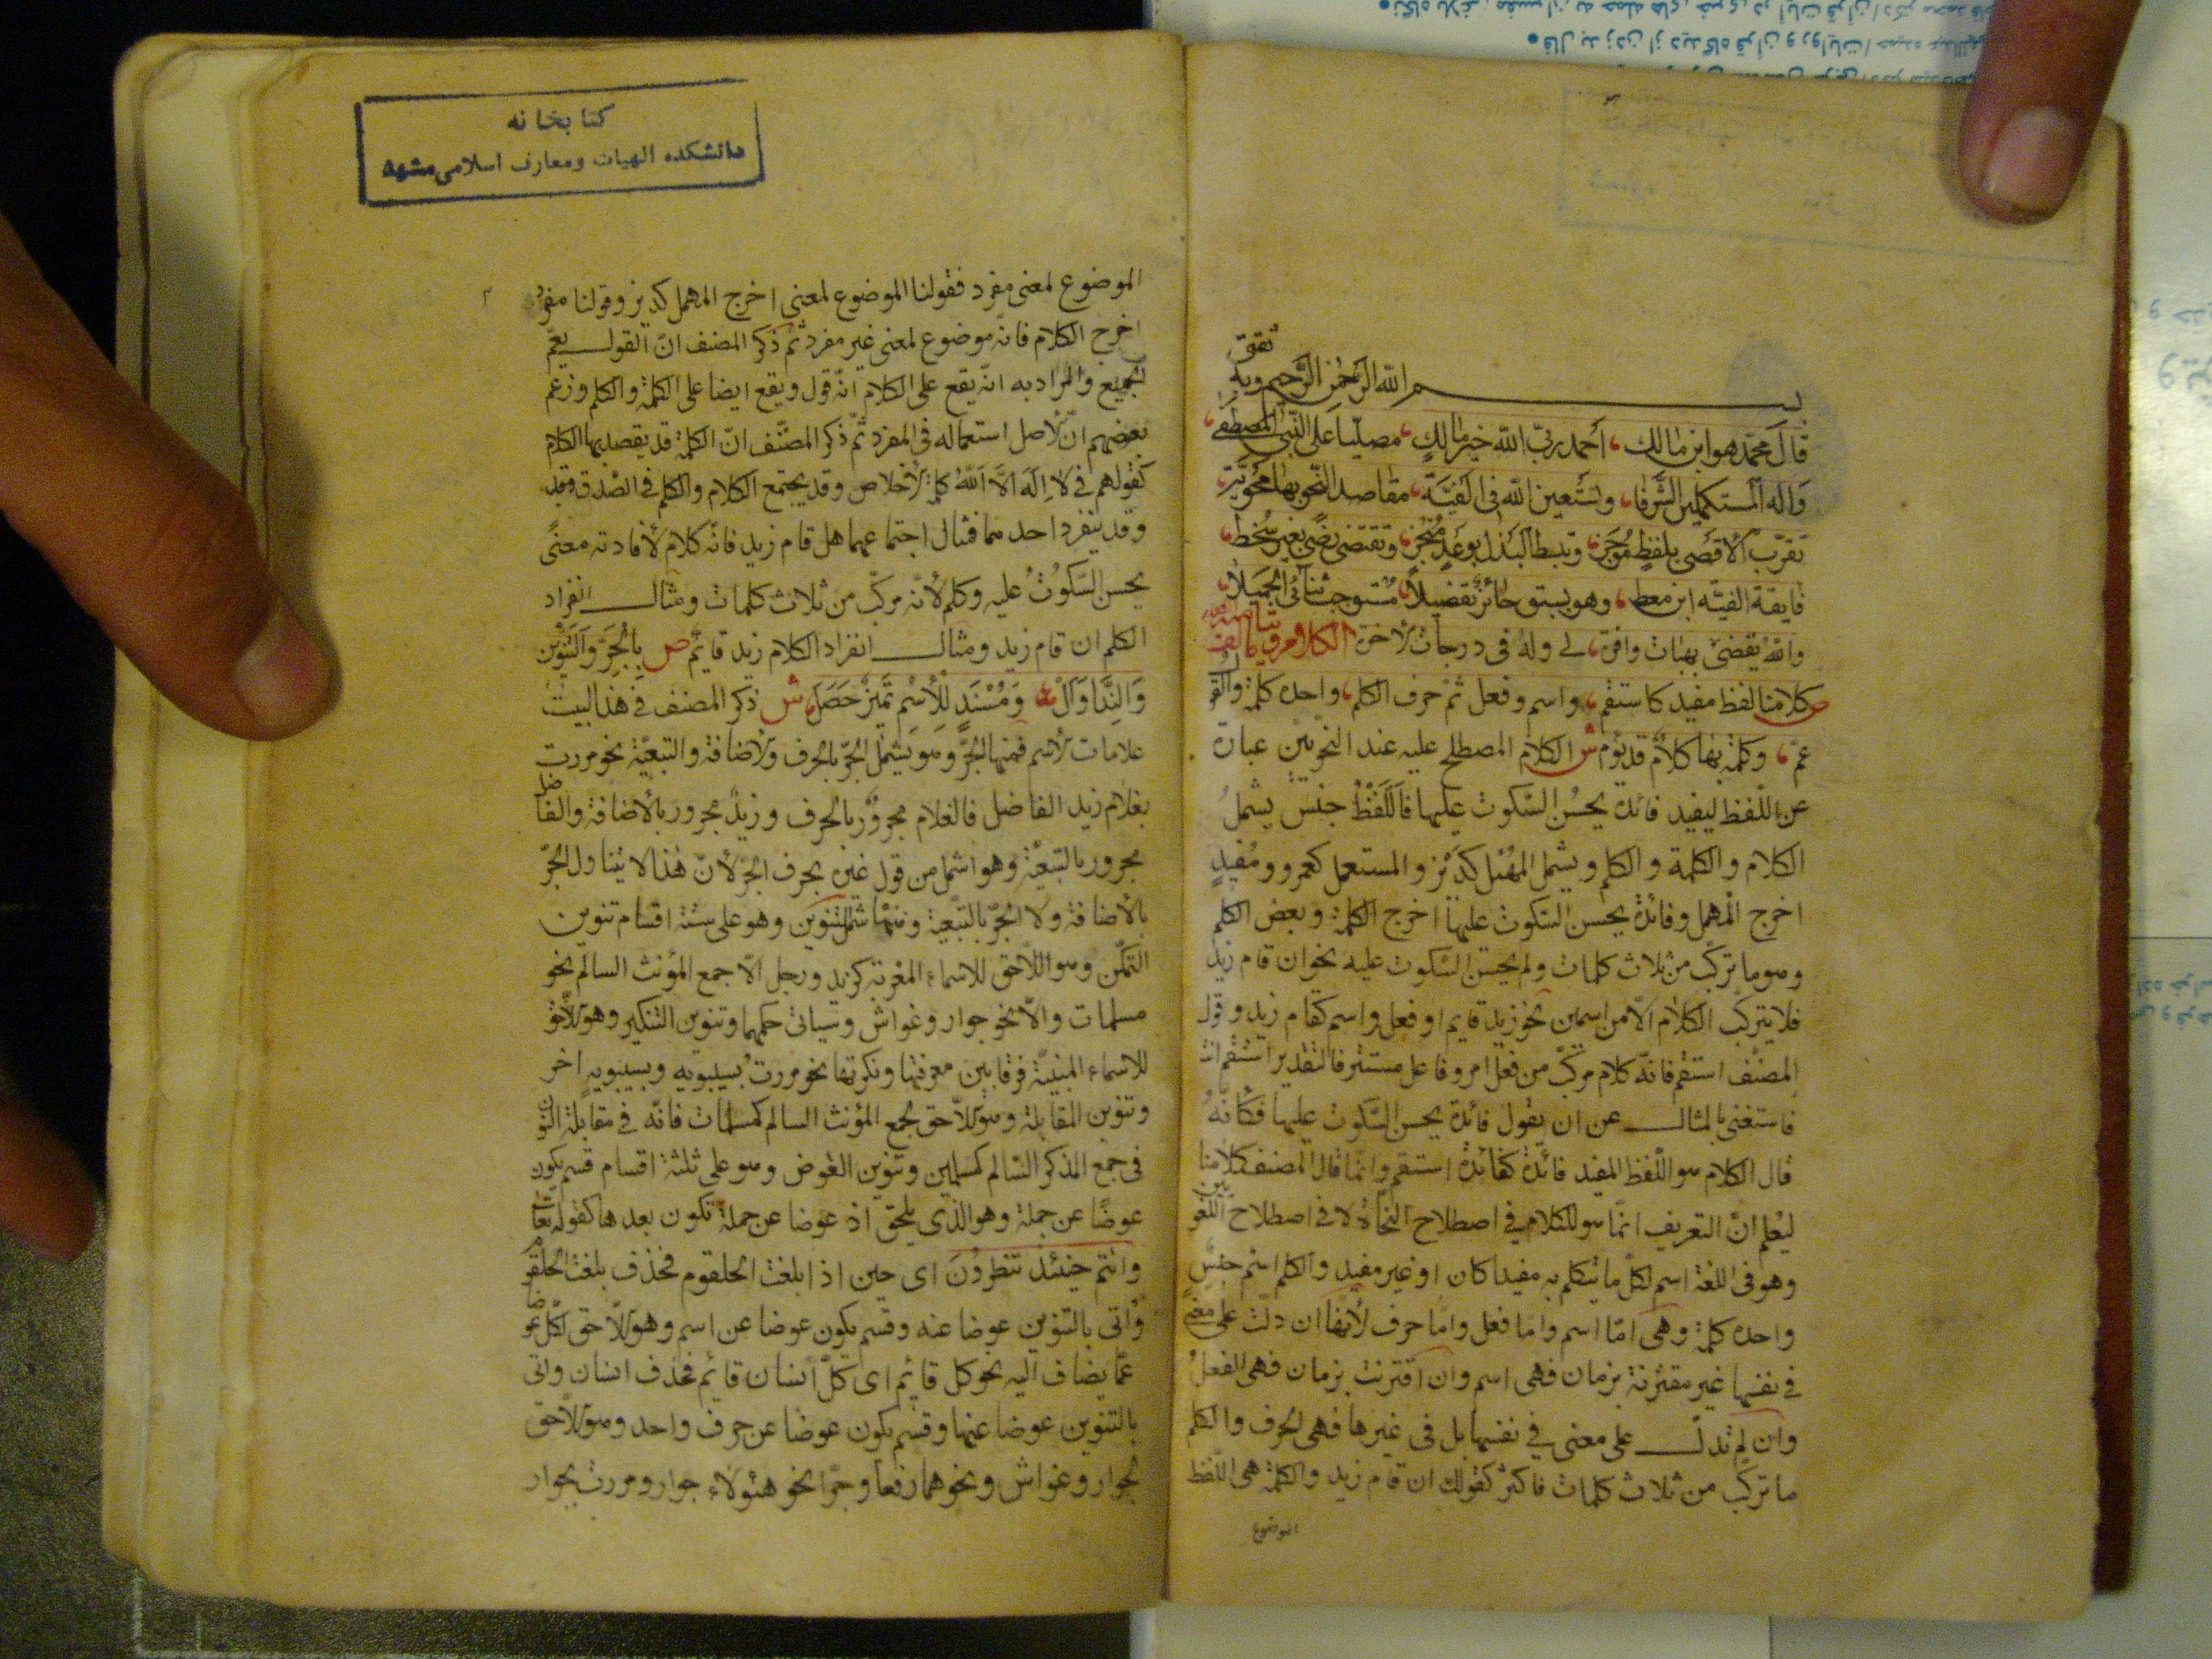 بسم الله الرحمن الرحيم وبه نقتى
قال محمد هو ابن مالك احمد ربى الله خير مالك مصليا على النبى المصطفى
واله المستكملين الشرفا واستعين الله فى الفية مقاصد النحو بها محوية
تقرب الاقصى بلفظ موجز وتبسط البذل بوعد منجز وتقتضى رضى بغير سخط
فايقة الفية ابن معط وهو بسبق حائز تفضيلا مستوجب ثنائى الجميلا
والله يقضى بهبات وافرة لى وله فى درجات الاخرة الكلام وما يتالف منه
ص كلامنا لفظ مفيد كاستقم واسم وفعل ثم حرف الكلم واحده كلمة والقو
عم وكلمة بها كلام قد يؤم ش الكلام المصطلح عليه عند النحويين عبارة
عن اللفظ المفيد فائدة يحسن السكوت عليها فاللفظ جنس يشمل
الكلام والكلمة والكلم ويشمل المهمل كديز والمستعمل كعمرو ومفيد
اخرج المهمل وفائدة يحسن السكوت عليها اخرج الكلمة وبعض الكلم
وهو ما تركب من ثلاث كلمات ولم يحسن السكوت عليه نحو ان قام زيد
فلا يتركب الكلام الا من اسمين نحو زيد قايم او فعل واسم كقام زيد وقول
المصنف استقم فانه كلام مركب من فعل امر وفاعل مستتر فالتقدير استقم انت
فاستغنى بالمثال عن ان يقول فائدة يحسن السكوت عليها فكانه
قال الكلام هو اللفظ المفيد فائدة كفائدة استقم وانما قال المصنف كلامنا
ليعلم ان التعريف انما هو للكلام فى اصطلاح النحاة لا فى اصطلاح اللغويين
وهو فى اللغة اسم لكل ما يتكلم به مفيدا كان او غير مفيد والكلم اسم جنس
واحده كلمة وهى اما اسم واما فعل واما حرف لانها ان دلت على معنى
فى نفسها غير مقترنة بزمان فهى اسم وان اقترنت بزمان فهى الفعل
وان لم تدل على معنى فى نفسها بل فى غيرها فهى الحرف والكلم
ما تركب من ثلاث كلمات فاكثر كقولك ان قام زيد والكلمة هى اللفظ
الموضوع
كتابخانه
دانشكده الهيات ومعارف اسلامى مشهد
٢
الموضوع لمعنى مفرد فقولنا الموضوع لمعنى اخرج المهمل كديز وقولنا مفرد
اخرج الكلام فانه موضوع لمعنى غير مفرد ثم ذكر المصنف ان القول يعم
الجميع والمراد به انه يقع على الكلام انه قول ويقع ايضا على الكلمة والكلم وزعم
بعضهم ان الاصل استعماله فى المفرد ثم ذكر المصنف ان الكلمة قد يقصد بها الكلام
كقولهم فى لا اله الا الله كلمة الاخلاص وقد يجتمع الكلام والكلم فى الصدق وقد
وقد ينفرد احدهما فمثال اجتماعهما هل قام زيد فانه كلام لافادته معنى
يحسن السكوت عليه وكلم لانه مركب من ثلاث كلمات ومثال انفراد
الكلم ان قام زيد ومثال انفراد الكلام زيد قايم ص بالجر والتنوين
والندا وال ومسند للاسم تميز حصل ش ذكر المصنف فى هذا البيت
علامات الاسم فمنها الجر وهو يشمل الجر بالحرف والاضافة والتبعية نحو مررت
بغلام زيد الفاضل فالغلام مجرور بالحرف وزيد مجرور بالاضافة والفاضل
مجرور بالتبعية وهو اشمل من قول غيره بحرف الجر لان هذا لا يتناول الجر
بالاضافة ولا الجر بالتبعية ومنها التنوين وهو على ستة اقسام تنوين
التمكن وهو اللاحق للاسماء المعربة كزيد ورجل الا جمع المؤنث السالم نحو
مسلمات والا نحو جوار وغواش وسياتى حكمهما وتنوين التنكير وهو اللاحق
للاسماء المبنية فرقا بين معرفتها ونكرتها نحو مررت بسيبويه وبسيبويه اخر
وتنوين المقابلة وهو اللاحق لجمع المؤنث السالم كمسلمات فانه فى مقابلة النون
فى جمع المذكر السالم كمسلمين وتنوين العوض وهو على ثلثة اقسام قسم يكون
عوضا عن جملة وهو الذى يلحق اذ عوضا عن جملة تكون بعدها كقوله تعالى
وانتم حينئذ تنظرون اى حين اذا بلغت الحلقوم فحذف بلغت الحلقوم
واتى بالتنوين عوضا عنه وقسم يكون عوضا عن اسم وهو اللاحق لكل عوضا
عما يضاف اليه نحو كل قائم اى كل انسان قائم فحذف انسان واتى
بالتنوين عوضا عنها وقسم يكون عوضا عن حرف واحد وهو اللاحق
لجوار وغواش ونحوهما رفعا وجرا نحو هئولاء جوار ومررت بجوار